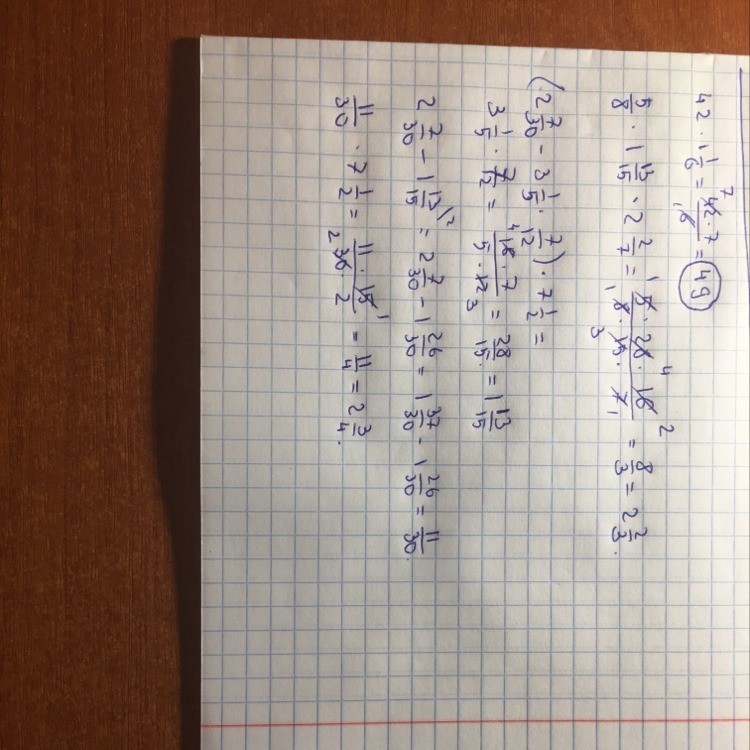 42 · 1 1/6 = 42·7/6 = 49
5/8 · 1 13/15 · 2 2/7 = 5·28·16/8·15·7 = 8/3 = 2 2/3.
(2 7/30 - 3 1/5 · 7/12) · 7 1/2 =
3 1/5 · 7/12 = 16·7/5·12 = 28/15 = 1 13/15
2 7/30 - 1 13/15 = 2 7/30 - 1 26/30 = 1 37/30 - 1 26/30 = 11/30.
11/30 · 7 1/2 = 11·15/30·2 = 11/4 = 2 3/4.